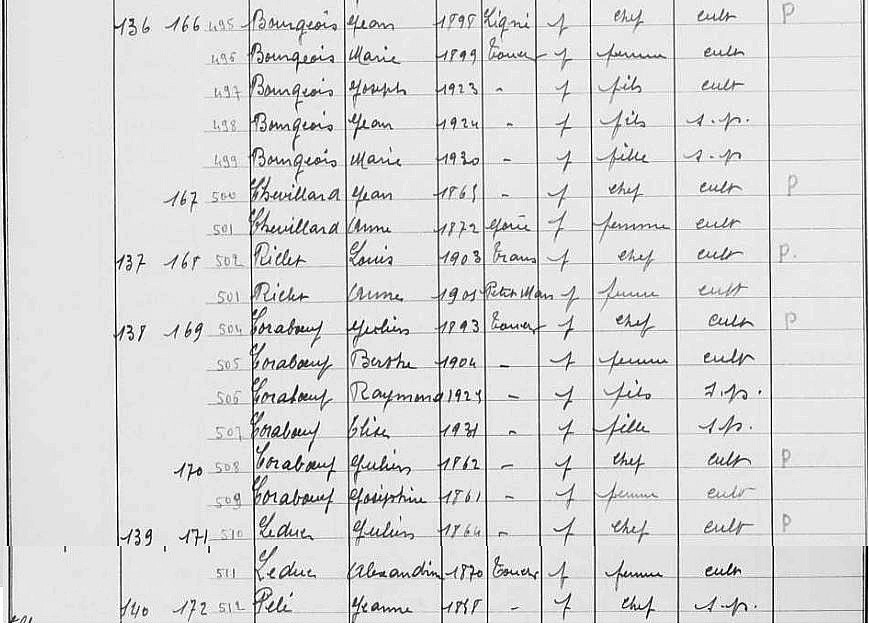 136 166 495 Bourgeois Jean 1898 Ligné f chef cult P
496 Bourgeois Marie 1899 f femme cult
497 Bourgeois Joseph 1923 - f fils cult
498 Bourgeois Jean 1924 - f fils s.p.
499 Bourgeois Marie 1930 - f fille s.p
167 500 Chevillard Jean 1865 - f chef cult P
501 Chevillard Anne 1872 f femme cult
137 168 502 Louis 1903 Trans f chef cult P.
501 Anne 1901 Petit Mars f femme cult
138 169 504 Corabœuf Julien 1893 f chef cult P
505 Corabœuf Berthe 1904 - f femme cult
506 Corabœuf Raymond - f fils s.p.
507 Corabœuf Elise 1931 - f fille s.p.
170 508 Corabœuf Julien 1862 - f chef cult P
509 Corabœuf Joséphine 1861 - f femme cult
139 171 510 Leduc Julien 1864 - f chef cult P
511 Leduc Alexandrine 1870 f femme cult
140 172 512 Pelé Jeanne - f chef s.p.